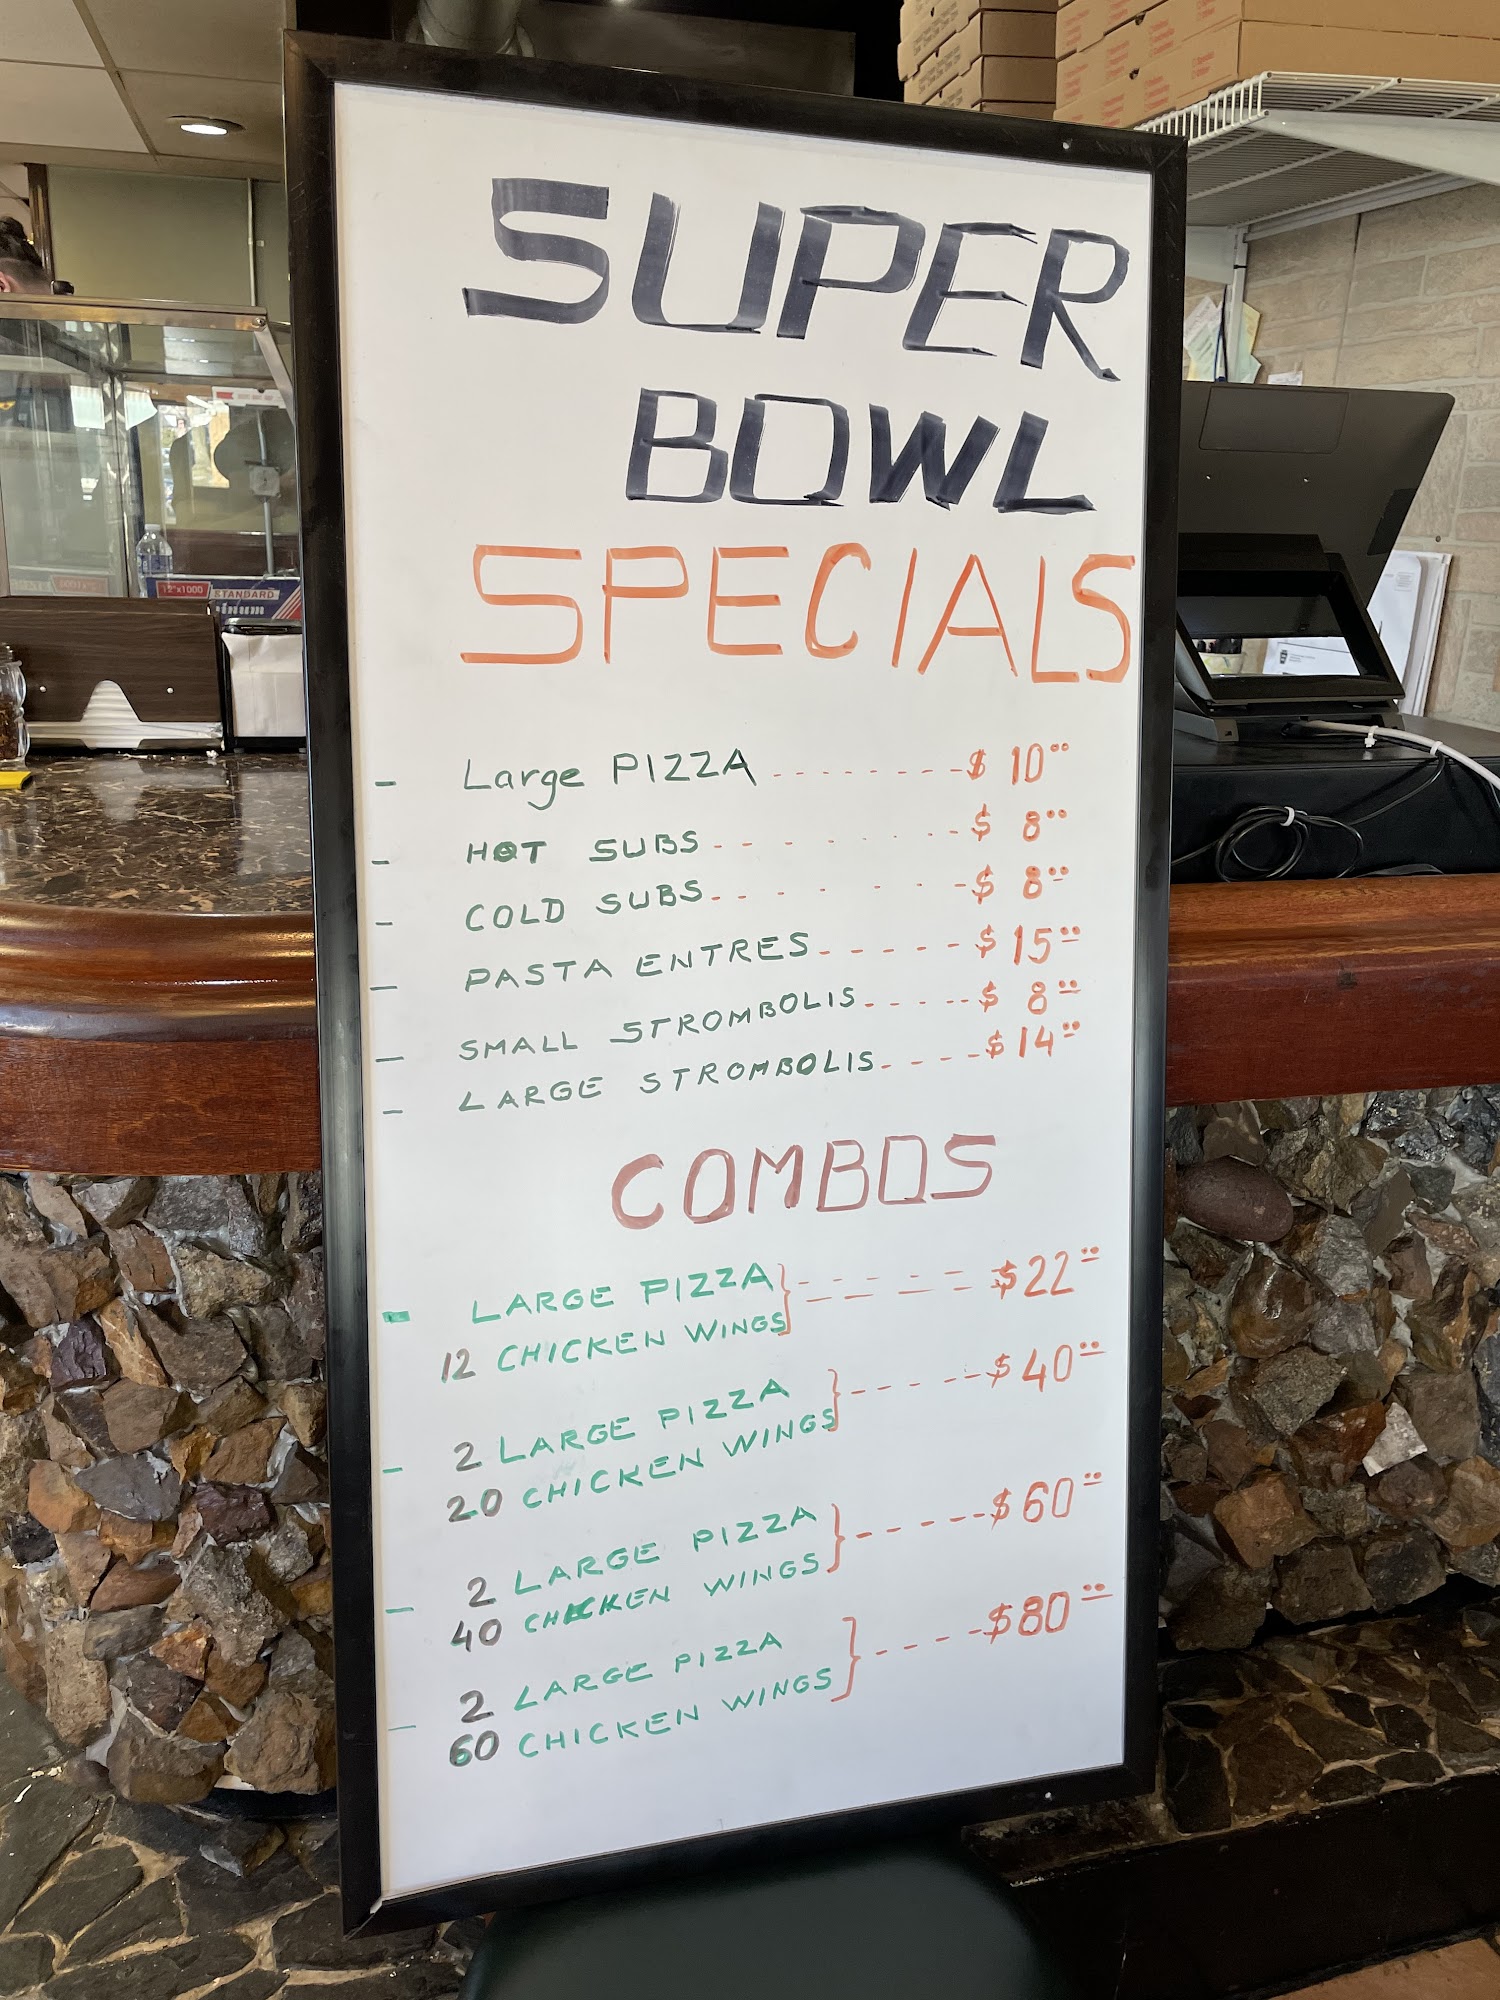 SUPER
BOWL
SPECIALS
- Large PIZZA -------- $ 10.00
- HOT SUBS - - - - - - $ 8.00
- COLD SUBS - - - - - - $ 8.00
- PASTA ENTRES - - - - - $ 15.00
- SMALL STROMBOLIS - - - - - $ 8.00
- LARGE STROMBOLIS - - - - $ 14.00
COMBOS
- LARGE PIZZA
12 CHICKEN WINGS } - - - - $22.00
- 2 LARGE PIZZA
20 CHICKEN WINGS } - - - - - $40.00
- 2 LARGE PIZZA
40 CHICKEN WINGS } - - - - - $60.00
- 2 LARGE PIZZA
60 CHICKEN WINGS } - - - - - $80.00
12"x1000 STANDARD